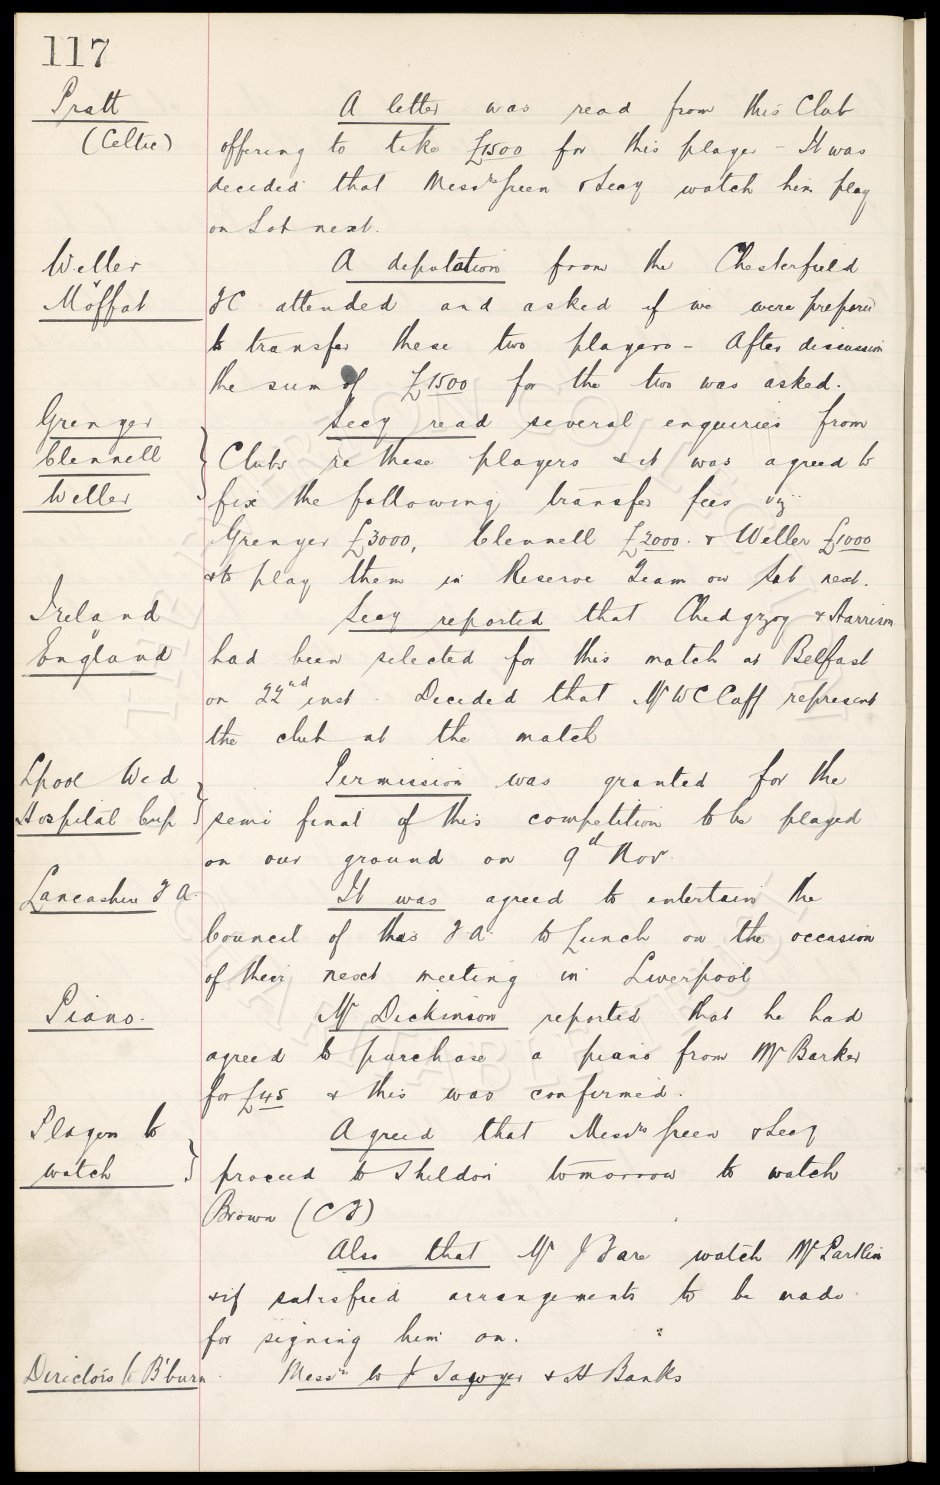 117
Pratt
(Celtic)
A letter was read from this Club
offering to take £1500 for this player - It was
decided that Messrs Green & Secy watch him play
on Sat next.
Weller
"
Moffat
A deputation from the Chesterfield
FC attended and asked if we were prepared
to transfer these two players - After discussion
the sum of £1500 for the two was asked.
Grenyer
Clennell
Weller
Secy read several enquiries from
Clubs re these players & it was agreed to
fix the following transfer fees viz:
Grenyer £3000, Clennell £2000. & Weller £1000
& to play them in Reserve Team on Sat next.
Ireland
v
England
Secy reported that Chedgzoy & Harrison
had been selected for this match at Belfast
on 22nd inst. Decided that Mr W C Cuff represent
the club at the match
Lpool Wed
Hospital Cup
Permission was granted for the
semi final of this competition to be played
on our ground on 9th Nov.
Lancashire F A.
It was agreed to entertain the
Council of this F A. to Lunch on the occasion
of their next meeting in Liverpool
Piano.
Mr Dickinson reported that he had
agreed to purchase a piano from Mr Barker
for £45 & this was confirmed.
Players to
watch
Agreed that Messrs Green & Secy
proceed to Shildon tomorrow to watch
Brown (CF)
Also that Mr J Fare watch McPartlin
& if satisfied arrangements to be made
for signing him on.
Directors to B'burn.
Messrs W J Sawyer & H Banks